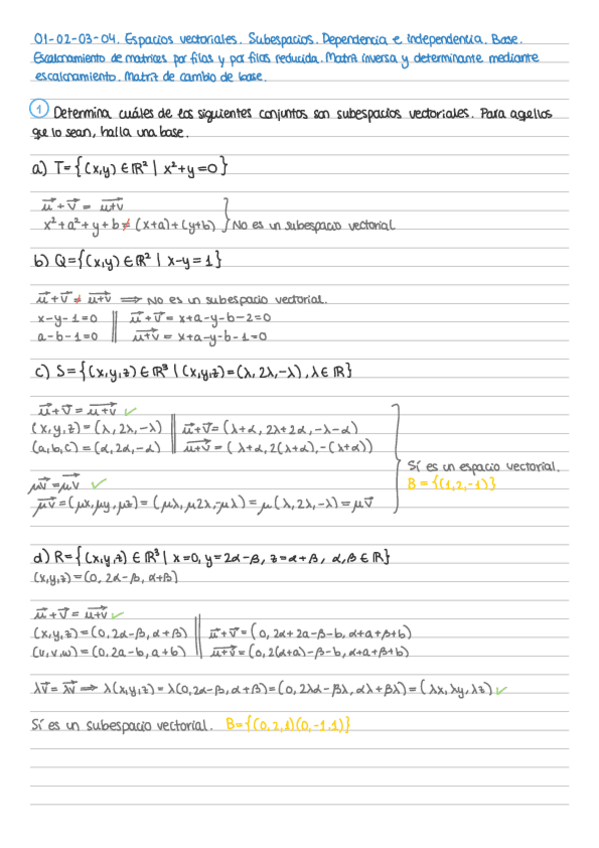 01-02-03-04. Espacios vectoriales. Subespacios. Dependencia e independencia. Base.
Escalonamiento de matrices por filas y por filas reducida. Matriz inversa y determinante mediante
escalonamiento. Matriz de cambio de base.
1 Determina cuáles de los siguientes conjuntos son subespacios vectoriales. Para aqellos
que lo sean, halla una base.
a) T={(x,y) ∈ ℝ² | x²+y=0}
u⃗+v⃗ = u+v⃗
x²+a²+y+b ≠ (x+a)+(y+b) } No es un subespacio vectorial
b) Q={(x,y) ∈ ℝ² | x-y=1}
u⃗+v⃗ ≠ u+v⃗ ⟹ No es un subespacio vectorial.
x-y-1=0 || u⃗+v⃗ = x+a-y-b-2=0
a-b-1=0 || u+v⃗ = x+a-y-b-1=0
c) S={(x,y,z) ∈ ℝ³ | (x,y,z)=(λ, 2λ,-λ), λ ∈ ℝ}
u⃗+v⃗ = u+v⃗ ✓
(x,y,z)=(λ, 2λ,-λ) || u⃗+v⃗=(λ+α, 2λ+2α, -λ-α)
(a,b,c)=(α, 2α,-α) || u+v⃗=(λ+α, 2(λ+α),-(λ+α))
Sí es un espacio vectorial.
B={(1,2,-1)}
μv⃗=μv⃗ ✓
μv⃗=(μx,μy,μz)=(μλ,μ2λ,-μλ)=μ(λ,2λ,-λ)=μv⃗
d) R={(x,y,z) ∈ ℝ³ | x=0, y=2α-β, z=α+β, α,β ∈ ℝ}
(x,y,z)=(0, 2α-β, α+β)
u⃗+v⃗ = u+v⃗ ✓
(x,y,z)=(0,2α-β, α+β) || u⃗+v⃗=(0, 2α+2a-β-b, α+a+β+b)
(u,v,w)=(0,2a-b,a+b) || u+v⃗=(0,2(α+a)-β-b, α+a+β+b)
λv⃗=λv⃗ ⟹ λ(x,y,z)=λ(0,2α-β, α+β)=(0,2λα-βλ, αλ+βλ)=(λx,λy,λz) ✓
Sí es un subespacio vectorial. B={(0,2,1)(0,-1,1)}